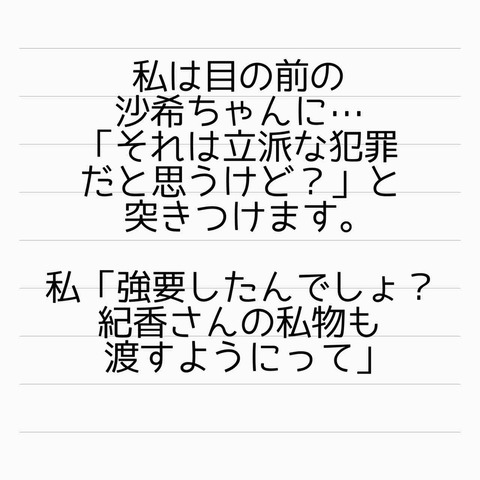 私は目の前の
沙希ちゃんに…
「それは立派な犯罪
だと思うけど？」と
突きつけます。
私「強要したんでしょ？
紀香さんの私物も
渡すようにって」